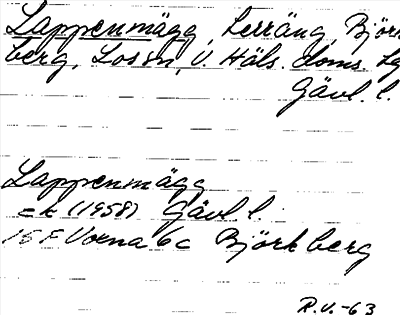 Lappenmägg, Lerräng, Björk
berg, Lossn, V. Häls. doms. lg
Gävl. l.
Lappenmägg
ek (1958) Gävl. l.
15 F Voxna 6c Björkberg
R.V.-63